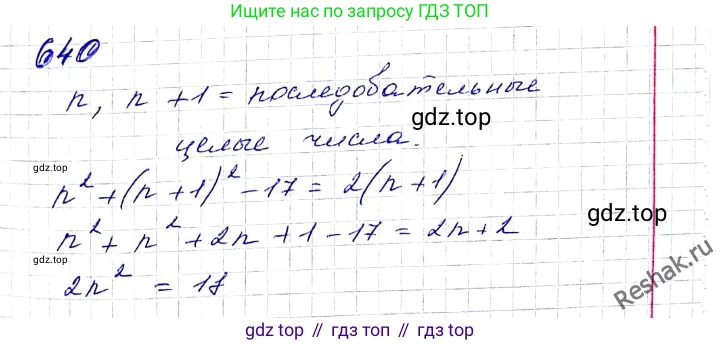 Ищите нас по запросу ГДЗ ТОП
640
n, n + 1 = последовательные
gdz.top
целые числа.
gdz.top
n² + (n + 1)² - 17 = 2(n + 1)
gdz.top
n² + n² + 2n + 1 - 17 = 2n + 2
gdz.top
2n² = 18
Reshak.ru
gdz top // гдз топ // gdz top